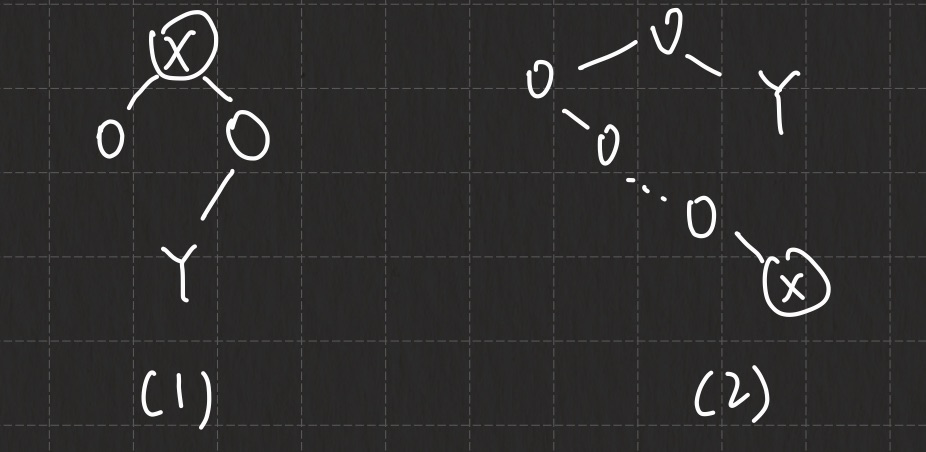 X
O O
Y
(1)
O
O Y
O
O
X
(2)